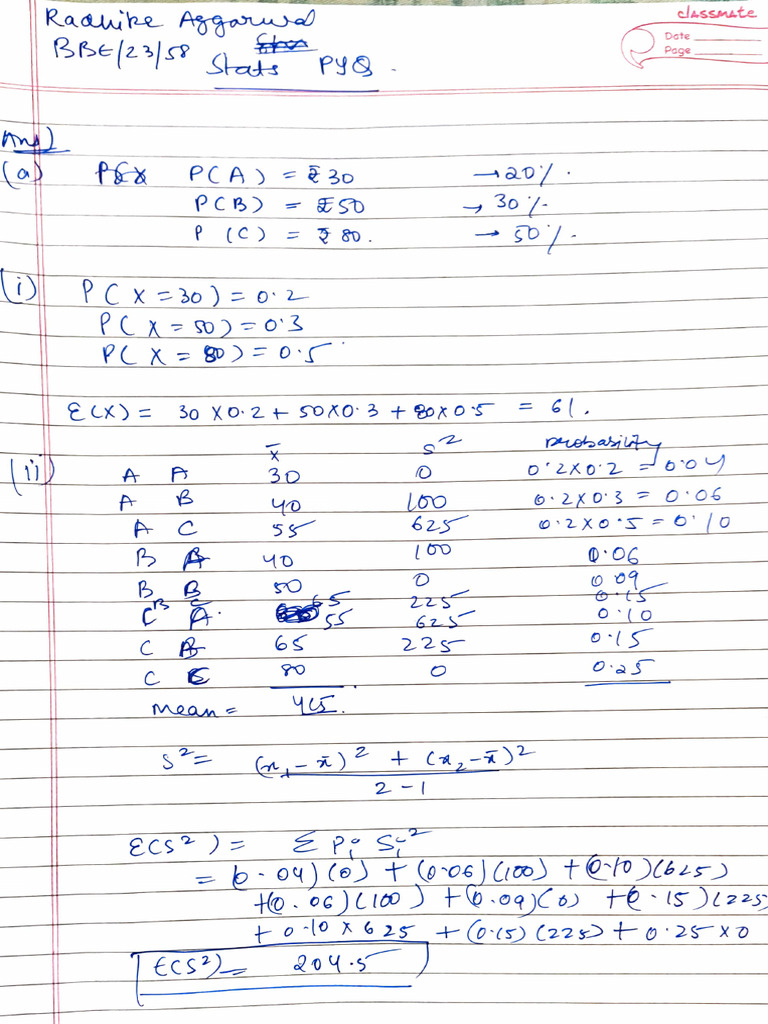 classmate
Date
Page
Radhika Aggarwal
BBE/23/58
Stats PYQ.
Ans1
(a) P(A) = ₹30 → 20%.
P(B) = ₹50 → 30%.
P(C) = ₹80. → 50%.
(i) P(X=30) = 0.2
P(X=50) = 0.3
P(X=80) = 0.5
E(X) = 30×0.2 + 50×0.3 + 80×0.5 = 61.
(ii) x̄ s² probability
A A 30 0 0.2×0.2 = 0.04
A B 40 100 0.2×0.3 = 0.06
A C 55 625 0.2×0.5 = 0.10
B A 40 100 0.06
B B 50 0 0.09
B C 65 225 0.15
C A. 55 625 0.10
C B 65 225 0.15
C C 80 0 0.25
Mean = 465.
s² = (x₁-x̄)² + (x₂-x̄)²
2-1
E(s²) = Σ Pᵢ Sᵢ²
= (0.04)(0) + (0.06)(100) + (0.10)(625)
+(0.06)(100) + (0.09)(0) + (0.15)(225)
+ 0.10×625 + (0.15)(225) + 0.25×0
E(S²) = 204.5